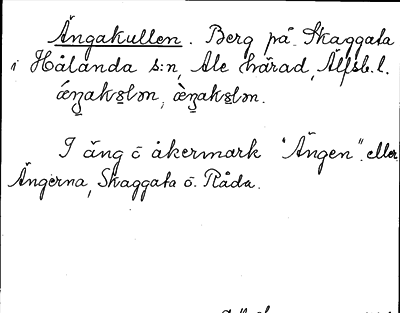 Ängakullen. Berg på Skaggata
i Hålanda s:n, Ale härad, Älfsb. l.
I äng o åkermark "Ängen" eller
Ängerna, Skaggata o. Råda.